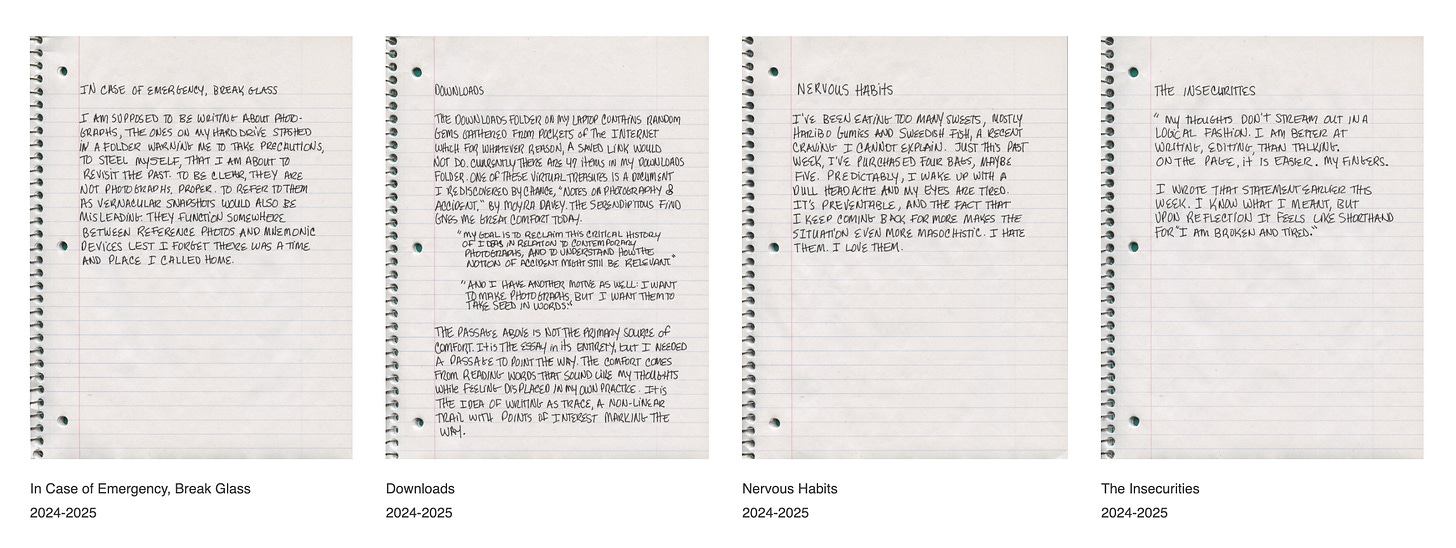 IN CASE OF EMERGENCY, BREAK GLASS
I AM SUPPOSED TO BE WRITING ABOUT PHOTO-
GRAPHS, THE ONES ON MY HARD DRIVE STASHED
IN A FOLDER WARNING ME TO TAKE PRECAUTIONS,
TO STEEL MYSELF, THAT I AM ABOUT TO
REVISIT THE PAST. TO BE CLEAR, THEY ARE
NOT PHOTOGRAPHS, PROPER. TO REFER TO THEM
AS VERNACULAR SNAPSHOTS WOULD ALSO BE
MISLEADING. THEY FUNCTION SOMEWHERE
BETWEEN REFERENCE PHOTOS AND MNEMONIC
DEVICES LEST I FORGET THERE WAS A TIME
AND PLACE I CALLED HOME.
In Case of Emergency, Break Glass
2024-2025
DOWNLOADS
THE DOWNLOADS FOLDER ON MY LAPTOP CONTAINS RANDOM
GEMS GATHERED FROM POCKETS OF THE INTERNET
WHICH FOR WHATEVER REASON, A SAVED LINK WOULD
NOT DO. CURRENTLY THERE ARE 49 ITEMS IN MY DOWNLOADS
FOLDER. ONE OF THESE VIRTUAL TREASURES IS A DOCUMENT
I REDISCOVERED BY CHANCE, "NOTES ON PHOTOGRAPHY &
ACCIDENT," BY MOYRA DAVEY. THE SERENDIPITOUS FIND
GIVES ME GREAT COMFORT TODAY.
"MY GOAL IS TO RECLAIM THIS CRITICAL HISTORY
OF IDEAS IN RELATION TO CONTEMPORARY
PHOTOGRAPHS, AND TO UNDERSTAND HOW THE
NOTION OF ACCIDENT MIGHT STILL BE RELEVANT"
"AND I HAVE ANOTHER MOTIVE AS WELL: I WANT
TO MAKE PHOTOGRAPHS, BUT I WANT THEM TO
TAKE SEED IN WORDS."
THE PASSAGE ABOVE IS NOT THE PRIMARY SOURCE OF
COMFORT. It is THE ESSAY in its ENTIRETY, but I NEEDED
A PASSAGE TO POINT THE WAY. THE COMFORT COMES
FROM READING WORDS THAT SOUND LIKE MY THOUGHTS
WHILE FEELING DISPLACED IN MY OWN PRACTICE. It is
THE IDEA OF WRITING AS TRACE, A NON-LINEAR
TRAIL WITH POINTS OF INTEREST MARKING THE
WAY.
Downloads
2024-2025
NERVOUS HABITS
I'VE BEEN EATING TOO MANY SWEETS, MOSTLY
HARIBO GUMIES AND SWEEDISH FISH, A RECENT
CRAVING I CANNOT EXPLAIN. JUST THIS PAST
WEEK, I'VE PURCHASED FOUR BAGS, MAYBE
FIVE. PREDICTABLY, I WAKE UP WITH A
DULL HEADACHE AND MY EYES ARE TIRED.
IT'S PREVENTABLE, AND THE FACT THAT
I KEEP COMING BACK FOR MORE MAKES THE
SITUATION EVEN MORE MASOCHISTIC. I HATE
THEM. I LOVE THEM.
Nervous Habits
2024-2025
THE INSECURITIES
"MY THOUGHTS DON'T STREAM OUT IN A
LOGICAL FASHION. I AM BETTER AT
WRITING, EDITING, THAN TALKING.
ON THE PAGE, iT IS EASIER. MY FINGERS.
I WROTE THAT STATEMENT EARLIER THIS
WEEK. I KNOW WHAT I MEANT, BUT
UPON REFLECTION IT FEELS LIKE SHORTHAND
FOR "I AM BROKEN AND TIRED."
The Insecurities
2024-2025